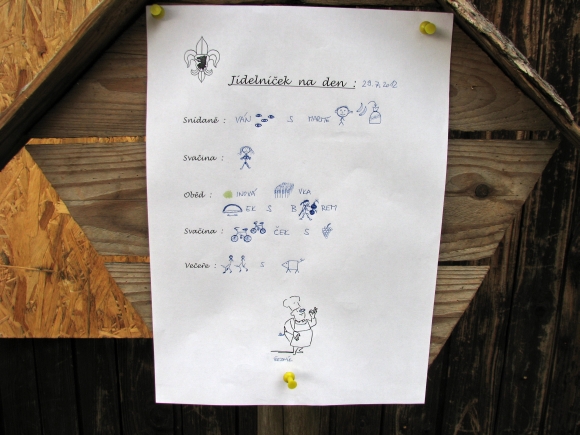 Jídelníček na den : 29.7.2012
Snídaně : VÁN S MARME
Svačina :
Oběd : INOVÁ VKA
EK S B REM
Svačina : ČEK S
Večeře : S